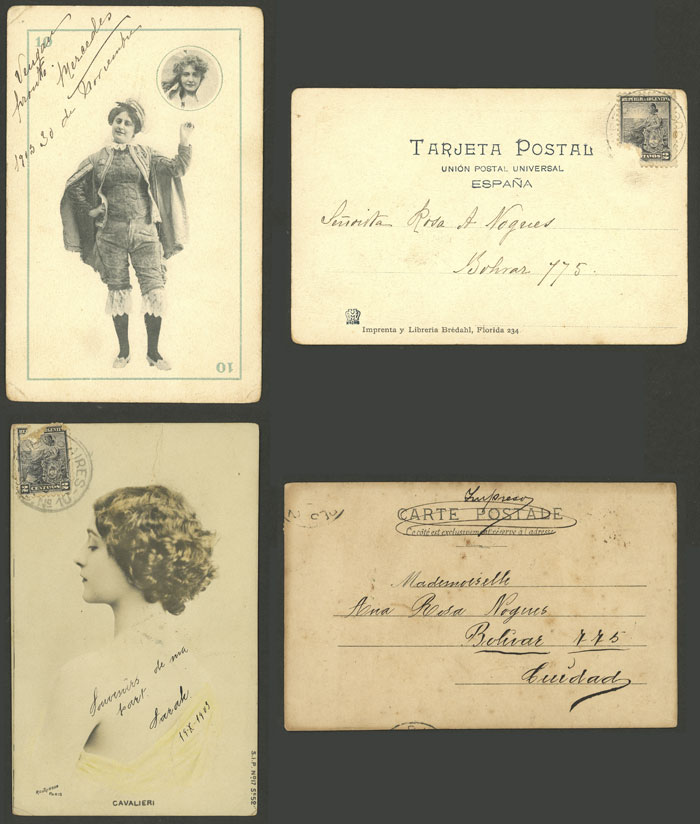 10
Mercedes
1903 30 de Noviembre
10
TARJETA POSTAL
UNIÓN POSTAL UNIVERSAL
ESPAÑA
REPUBLICA ARGENTINA
2 CENTAVOS 2
Señorita Rosa A Nogues
Bolivar 775.
Imprenta y Librería Brédahl, Florida 234
AIRES
Nº 10
2 CENTAVOS 2
Souvenirs de ma
part
Sarah
19-X-1903
REUTLINGER
PARIS
CAVALIERI
S.I.P. Nº 17 Sie 52
Impreso
CARTE POSTALE
Ce côté est exclusivement réservé à l'adresse
Mademoiselle
Ana Rosa Nogues
Bolivar 775
Ciudad